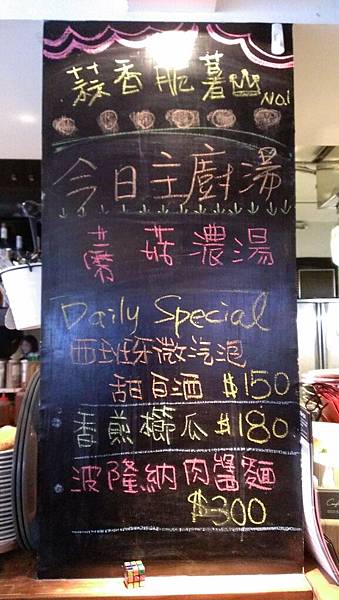 蒜香脆薯 NO.1
今日主廚湯
蘑菇濃湯
Daily Special
西班牙微汽泡
甜白酒 $150
香煎櫛瓜 $180
波隆納肉醬麵
$300